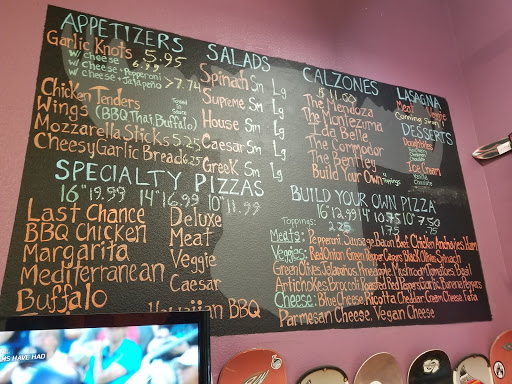 APPETIZERS
Garlic Knots 5.95
w/ cheese 6.
w/ cheese + Pepperoni
w/ cheese + Jalapeño > 7.74
Chicken Tenders
Wings (BBQ Thai, Buffalo)
Mozzarella Sticks 5.25
Cheesy Garlic Bread 6.25
SALADS
Spinach Sm Lg
Supreme Sm Lg
House Sm Lg
Caesar Sm Lg
Greek Sm Lg
CALZONES
$11.00
The Mendoza
The Montezuma
Ida Belle
The Commodor
The Bentley
Build Your Own
LASAGNA
Meat Veggie
Coming Soon!
DESSERTS
Doughbites
Ice Cream
Vanilla
Chocolate
SPECIALTY PIZZAS
16" 19.99 14" 16.99 10" 11.99
Last Chance
BBQ Chicken
Margarita
Mediterranean
Buffalo
Deluxe
Meat
Veggie
Caesar
Hawaiian BBQ
BUILD YOUR OWN PIZZA
16" 12.99 14" 10.75 10" 7.50
Toppings: 2.25 1.75 .75
Meats: Pepperoni, Sausage, Bacon, Beef, Chicken, Anchovies, Ham
Veggies: Red Onion, Green Pepper, Capers, Black Olives, Spinach
Green Olives, Jalapenos, Pineapple, Mushroom, Tomatoes, Basil
Artichokes, Broccoli, Roasted Red Peppers, Garlic, Banana Peppers
Cheese: Blue Cheese, Ricotta, Cheddar, Cream Cheese, Feta
Parmesan Cheese, Vegan Cheese
MS HAVE HAD